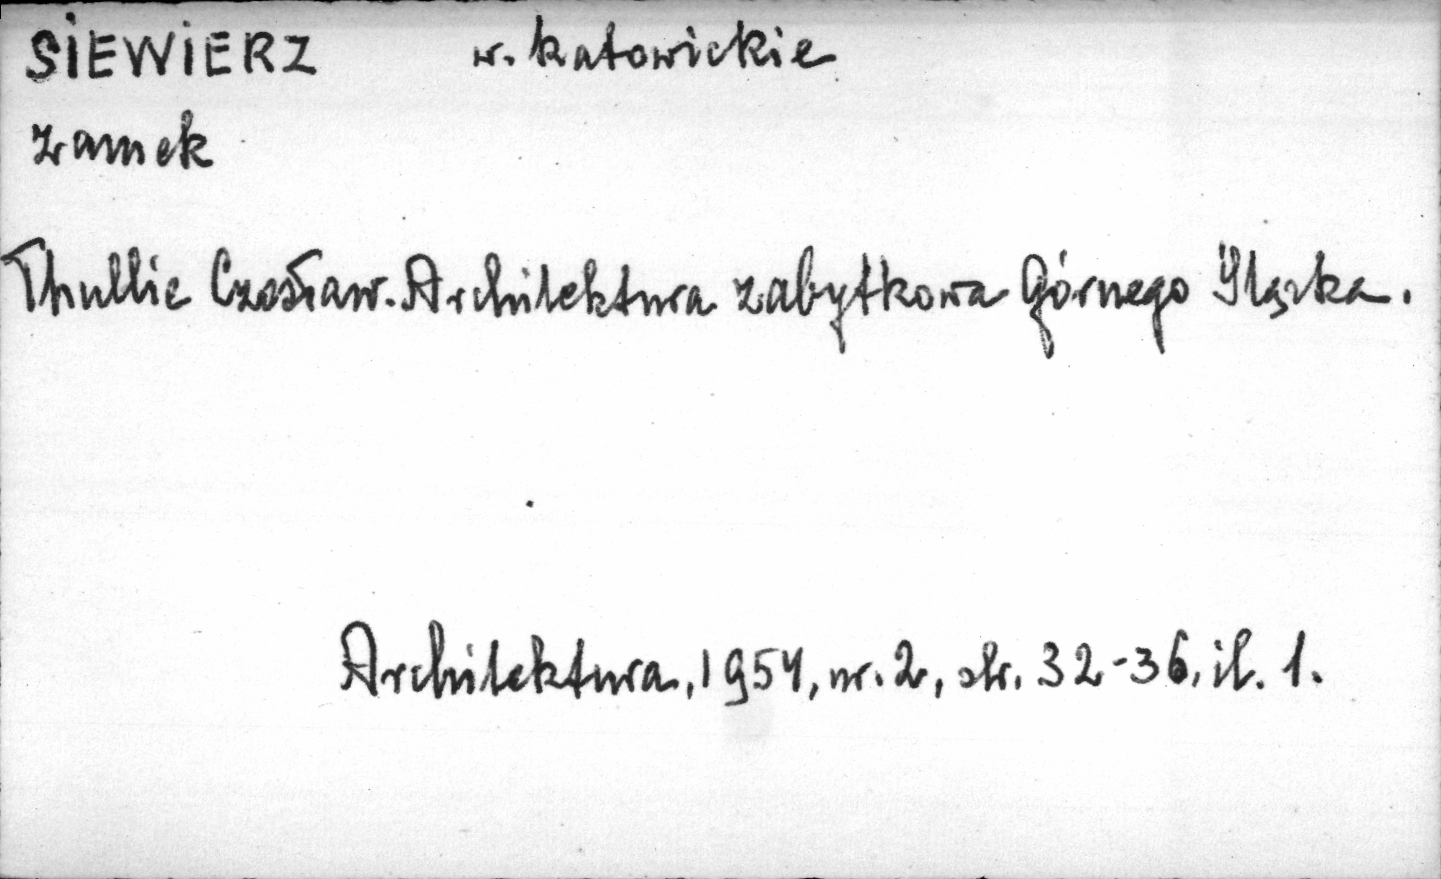 SIEWIERZ w. katowickie
zamek
Thullie Czesław. Architektura zabytkowa Górnego Śląska.
Architektura, 1954, nr. 2, str. 32-36, il. 1.